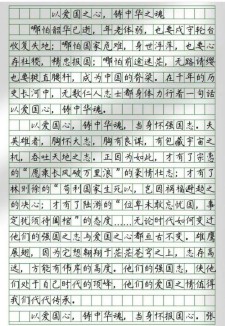 以爱国之心，铸中华之魂
哪怕韶华已逝，年老体弱，也要戍守轮台
收复失地；哪怕国家危难，身世浮萍，也要心
存社稷，精忠报国；哪怕前途迷茫，无路请缨
也要挺直腰杆，成为中国的脊梁。在十年的历
史长河中，无数仁人志士都身体力行着一句话
以爱国心，铸中华魂。
以爱国心，铸中华魂，当身怀强国志。夫
英雄者，胸怀大志，腹有良谋，有包藏宇宙之
机，吞吐天地之志。正因为如此，才有了宗悫
的“愿乘长风破万里浪”的豪情壮志；才有了
林则徐的“苟利国家生死以，岂因祸福避趋之
的决心；才有了陆游的“位卑未敢忘忧国，事
定犹须待阖棺”的态度……无论时代如何变过
他们的强国之志与爱国之心都亘古不变。雄鹰
展翅，因为它想翱翔于茫茫苍穹之上，志存高
远，方能有伟岸的高度，他们的强国志，使他
们处于自己时代的顶峰，他们的爱国之情值得
我们代代传承。
以爱国心，铸中华魂，当身怀报国心。张